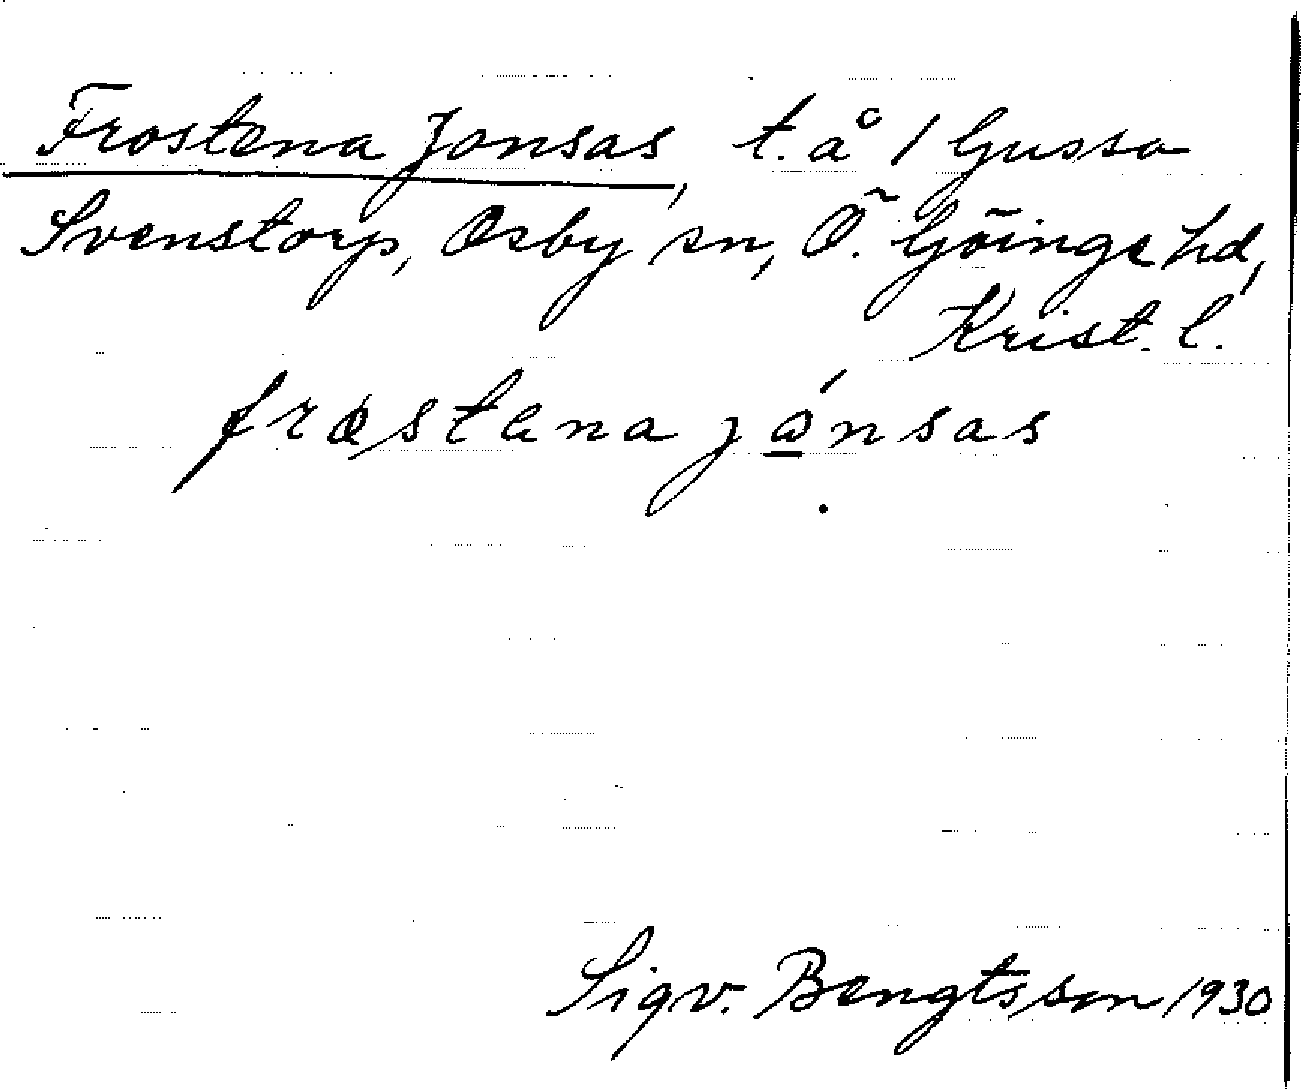 Frostena Jonsas, t. å 1 Gussa
Svenstorp, Osby sn, Ö. Göinge hd,
Krist. l.
frostena jónsas
Sigv. Bengtsson 1930